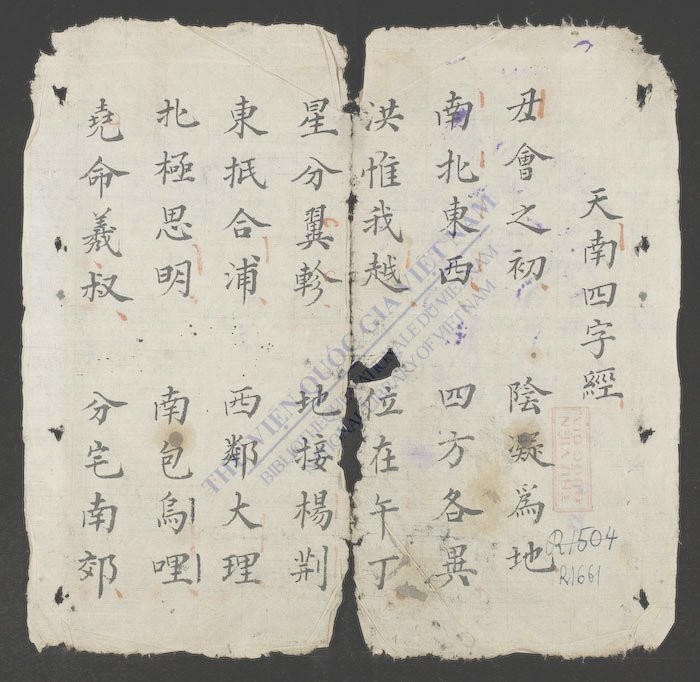 天南四字經
丑會之初 陰凝爲地
南北東西 四方各異
洪惟我越 位在午丁
星分翼軫 地接楊荆
東抵合浦 西鄰大理
北極思明 南包烏哩
堯命羲叔 分宅南郊
THƯ VIỆN QUỐC GIA VIỆT NAM
BIBLIOTHÈQUE NATIONALE DU VIETNAM
NATIONAL LIBRARY OF VIET NAM
THƯ VIỆN
QUỐC GIA
R1504
R1661